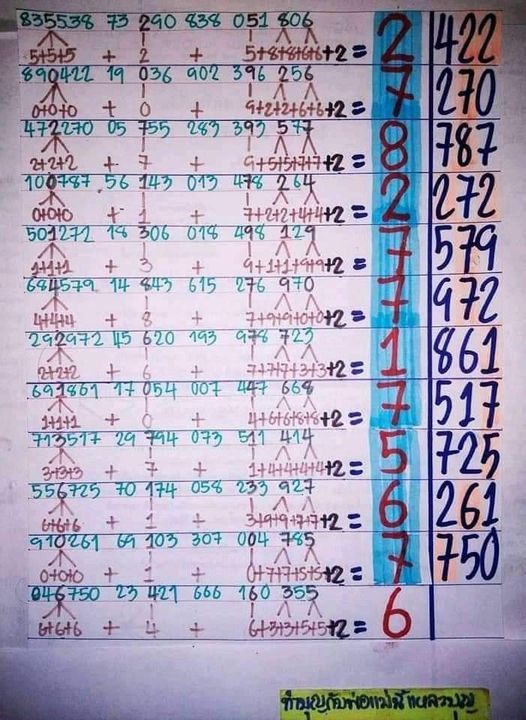 835538 73 290 838 051 806
5+5+5 + 2 + 5+8+8+6+6+2 = 2 422
890422 19 036 902 396 256
0+0+0 + 0 + 9+2+2+6+6+2 = 7 270
472270 05 755 283 393 577
2+2+2 + 7 + 9+5+5+7+7+2 = 8 787
100787 56 143 013 478 264
0+0+0 + 1 + 7+2+2+4+4+2 = 2 272
501272 18 306 018 498 129
1+1+1 + 3 + 9+1+1+9+9+2 = 7 579
684579 14 843 615 276 970
4+4+4 + 8 + 7+9+9+0+0+2 = 7 972
292972 45 620 193 978 723
2+2+2 + 6 + 7+7+7+3+3+2 = 1 861
691861 17 054 007 447 668
1+1+1 + 0 + 4+6+6+8+8+2 = 7 517
713517 29 794 073 511 414
3+3+3 + 7 + 1+4+4+4+4+2 = 5 725
556725 70 174 058 233 927
6+6+6 + 1 + 3+9+9+7+7+2 = 6 261
910261 69 103 307 004 785
0+0+0 + 1 + 0+7+7+5+5+2 = 7 750
046750 23 421 666 160 355
6+6+6 + 4 + 6+3+3+5+5+2 = 6
ทำบุญกับพ่อแม่